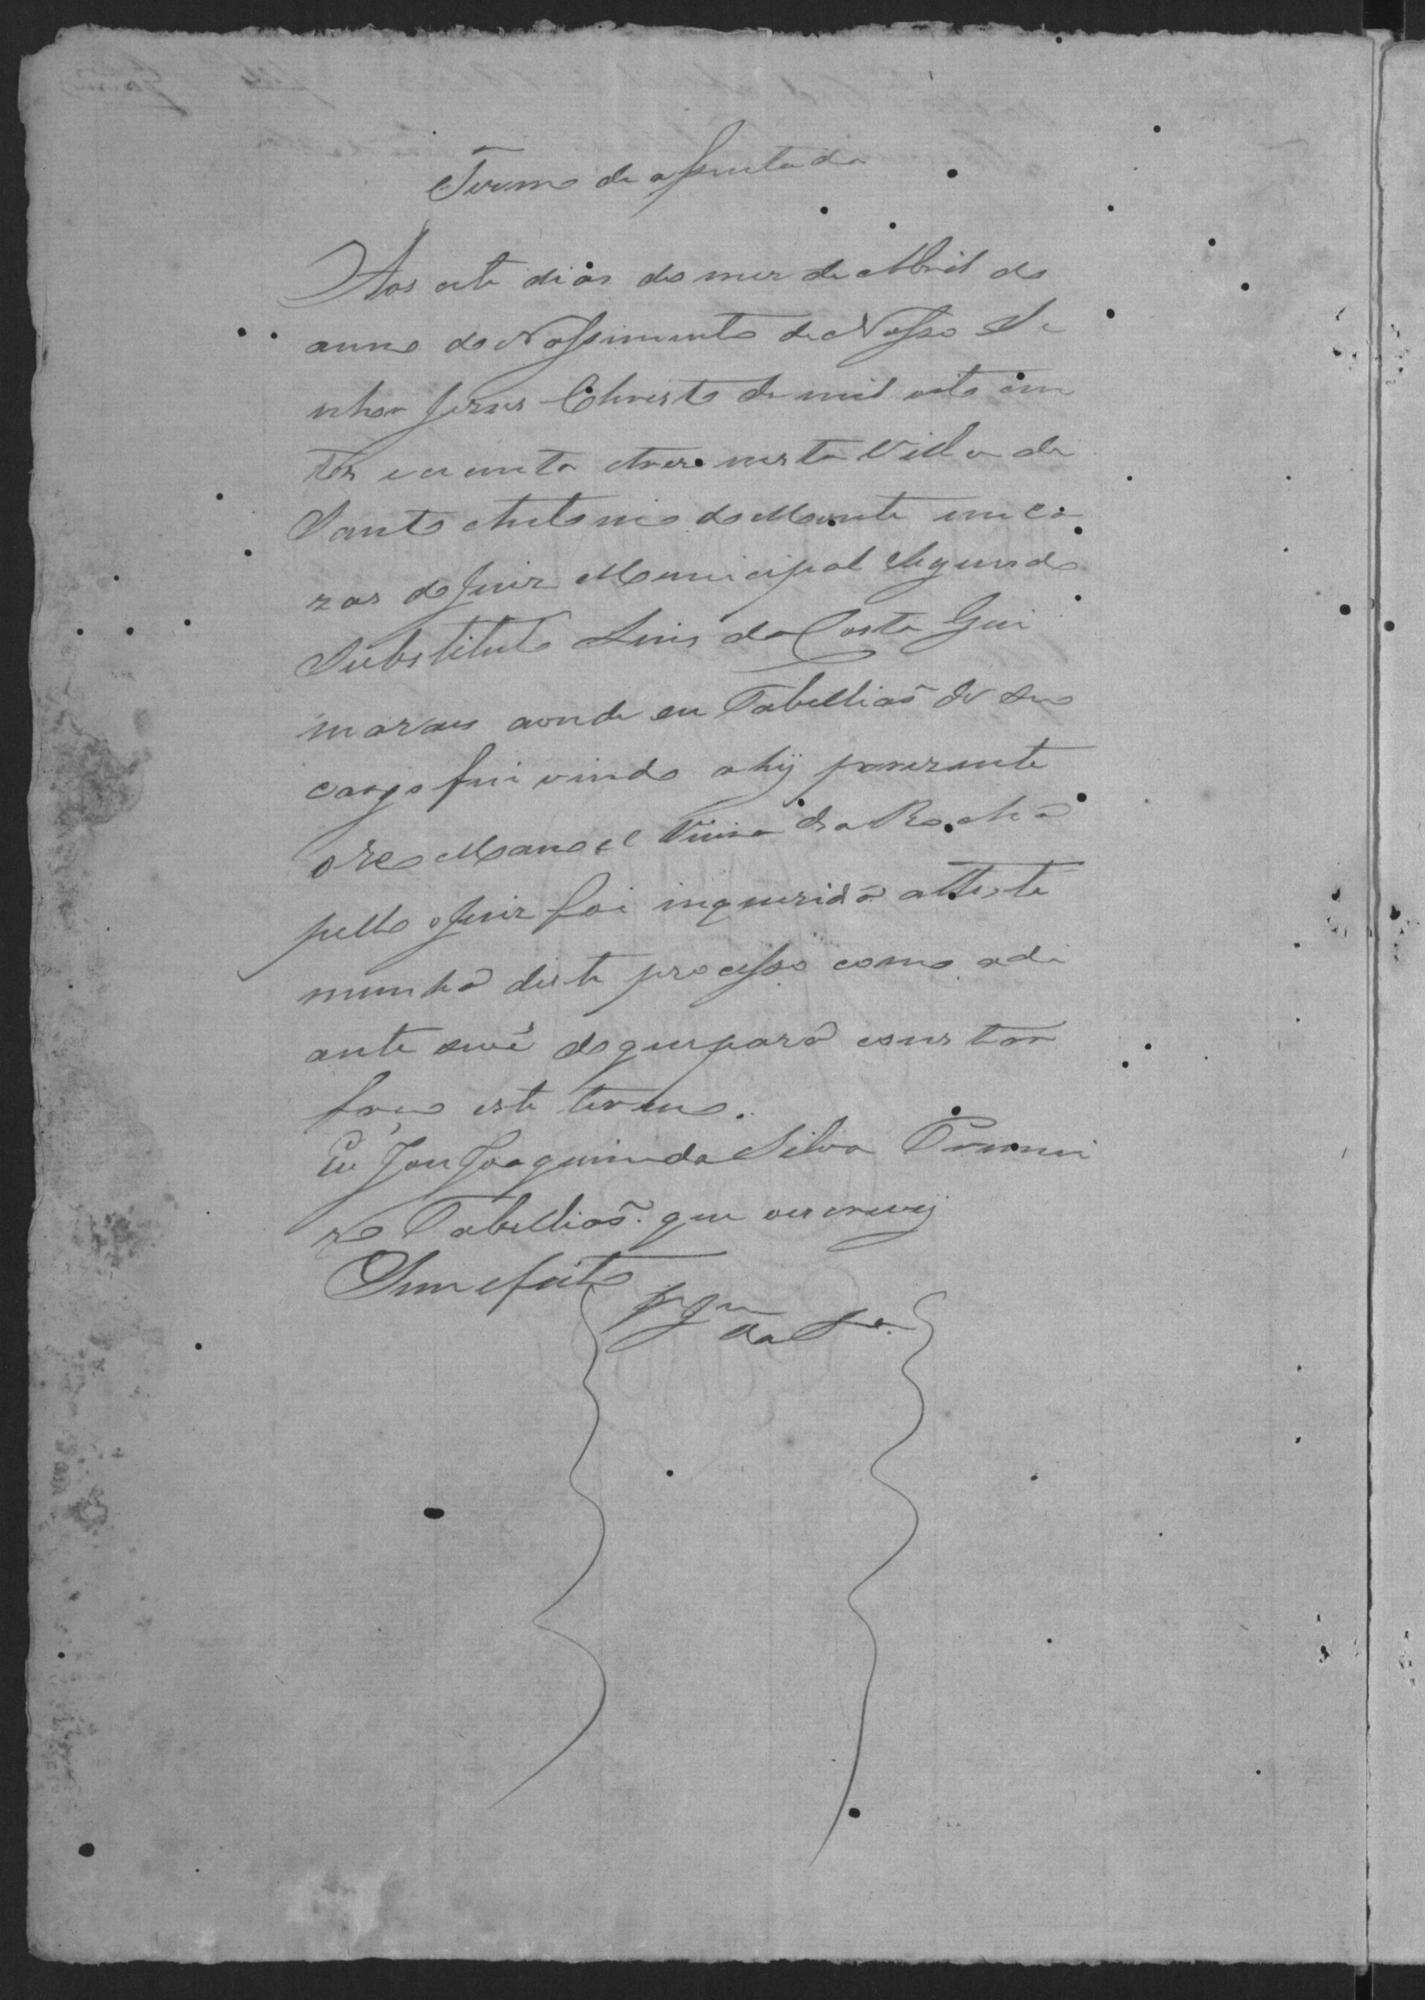 Termo de assentada
Aos oito dias do mes de Abril do
anno do Nassimento de Nosso Se
nhor Jesus Christo de mil oito cen
tos e oitenta e tres nesta Villa de
Santo Antonio do Monte em ca
zas do Juiz Municipal Segundo
Substituto Luis da Costa Gui
maraes aonde eu Tabelliaõ de seo
cargo fui vindo ahy prezente
o reo Manoel da Rocha
pello Juiz foi inquerida a teste
munha deste processo como adi
ante se vê do que para constar
faço este termo.
Eu Jose Joaquim da Silva Primei
ro Tabelliaõ que escrevy
Sem efeito
da Sa